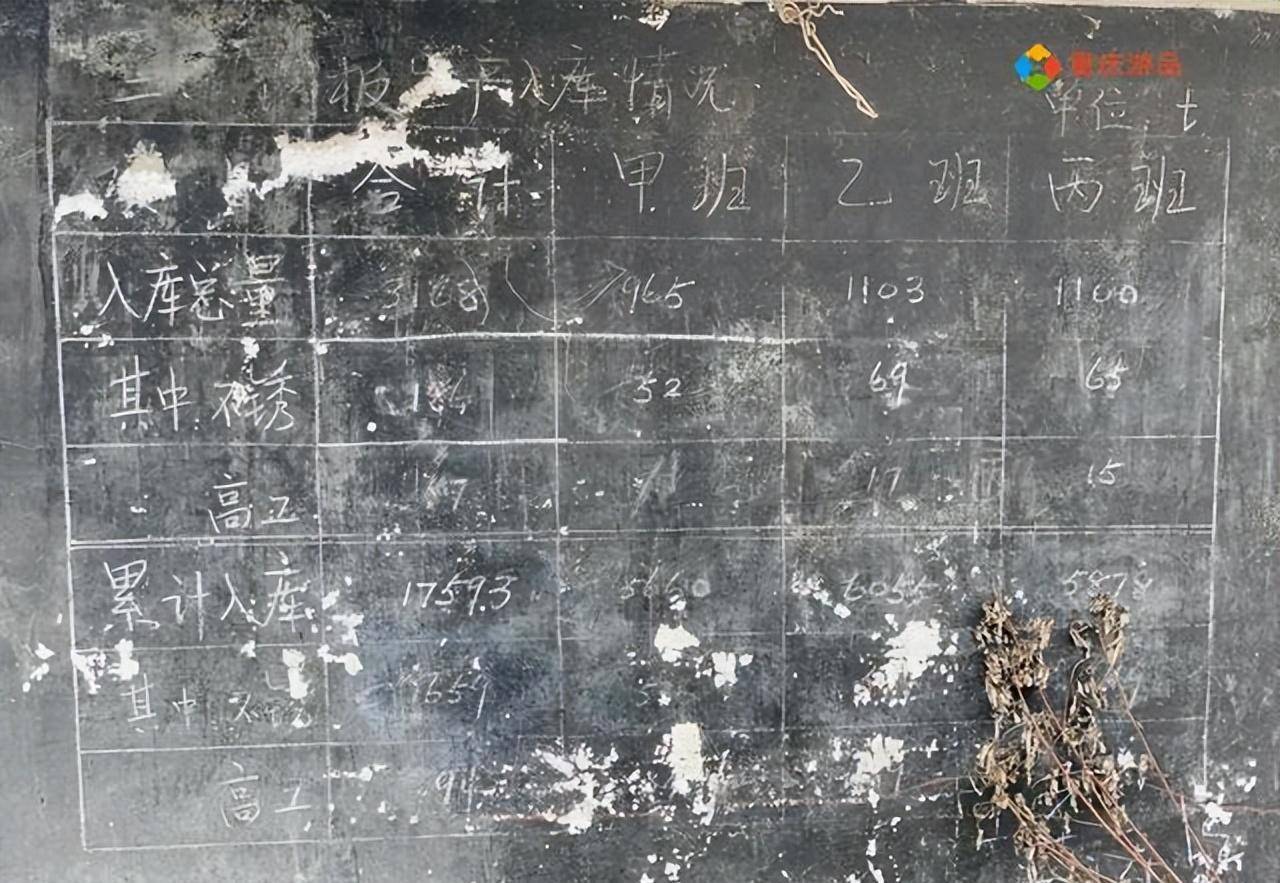 二、板 库入库情况
单位 t
合计 甲班 乙班 丙班
入库总量 3168 965 1103 1100
其中 不锈 186 52 69 65
高工 17 15
累计入库 17593 5660 6055 5878
其中 不锈 1659
高工